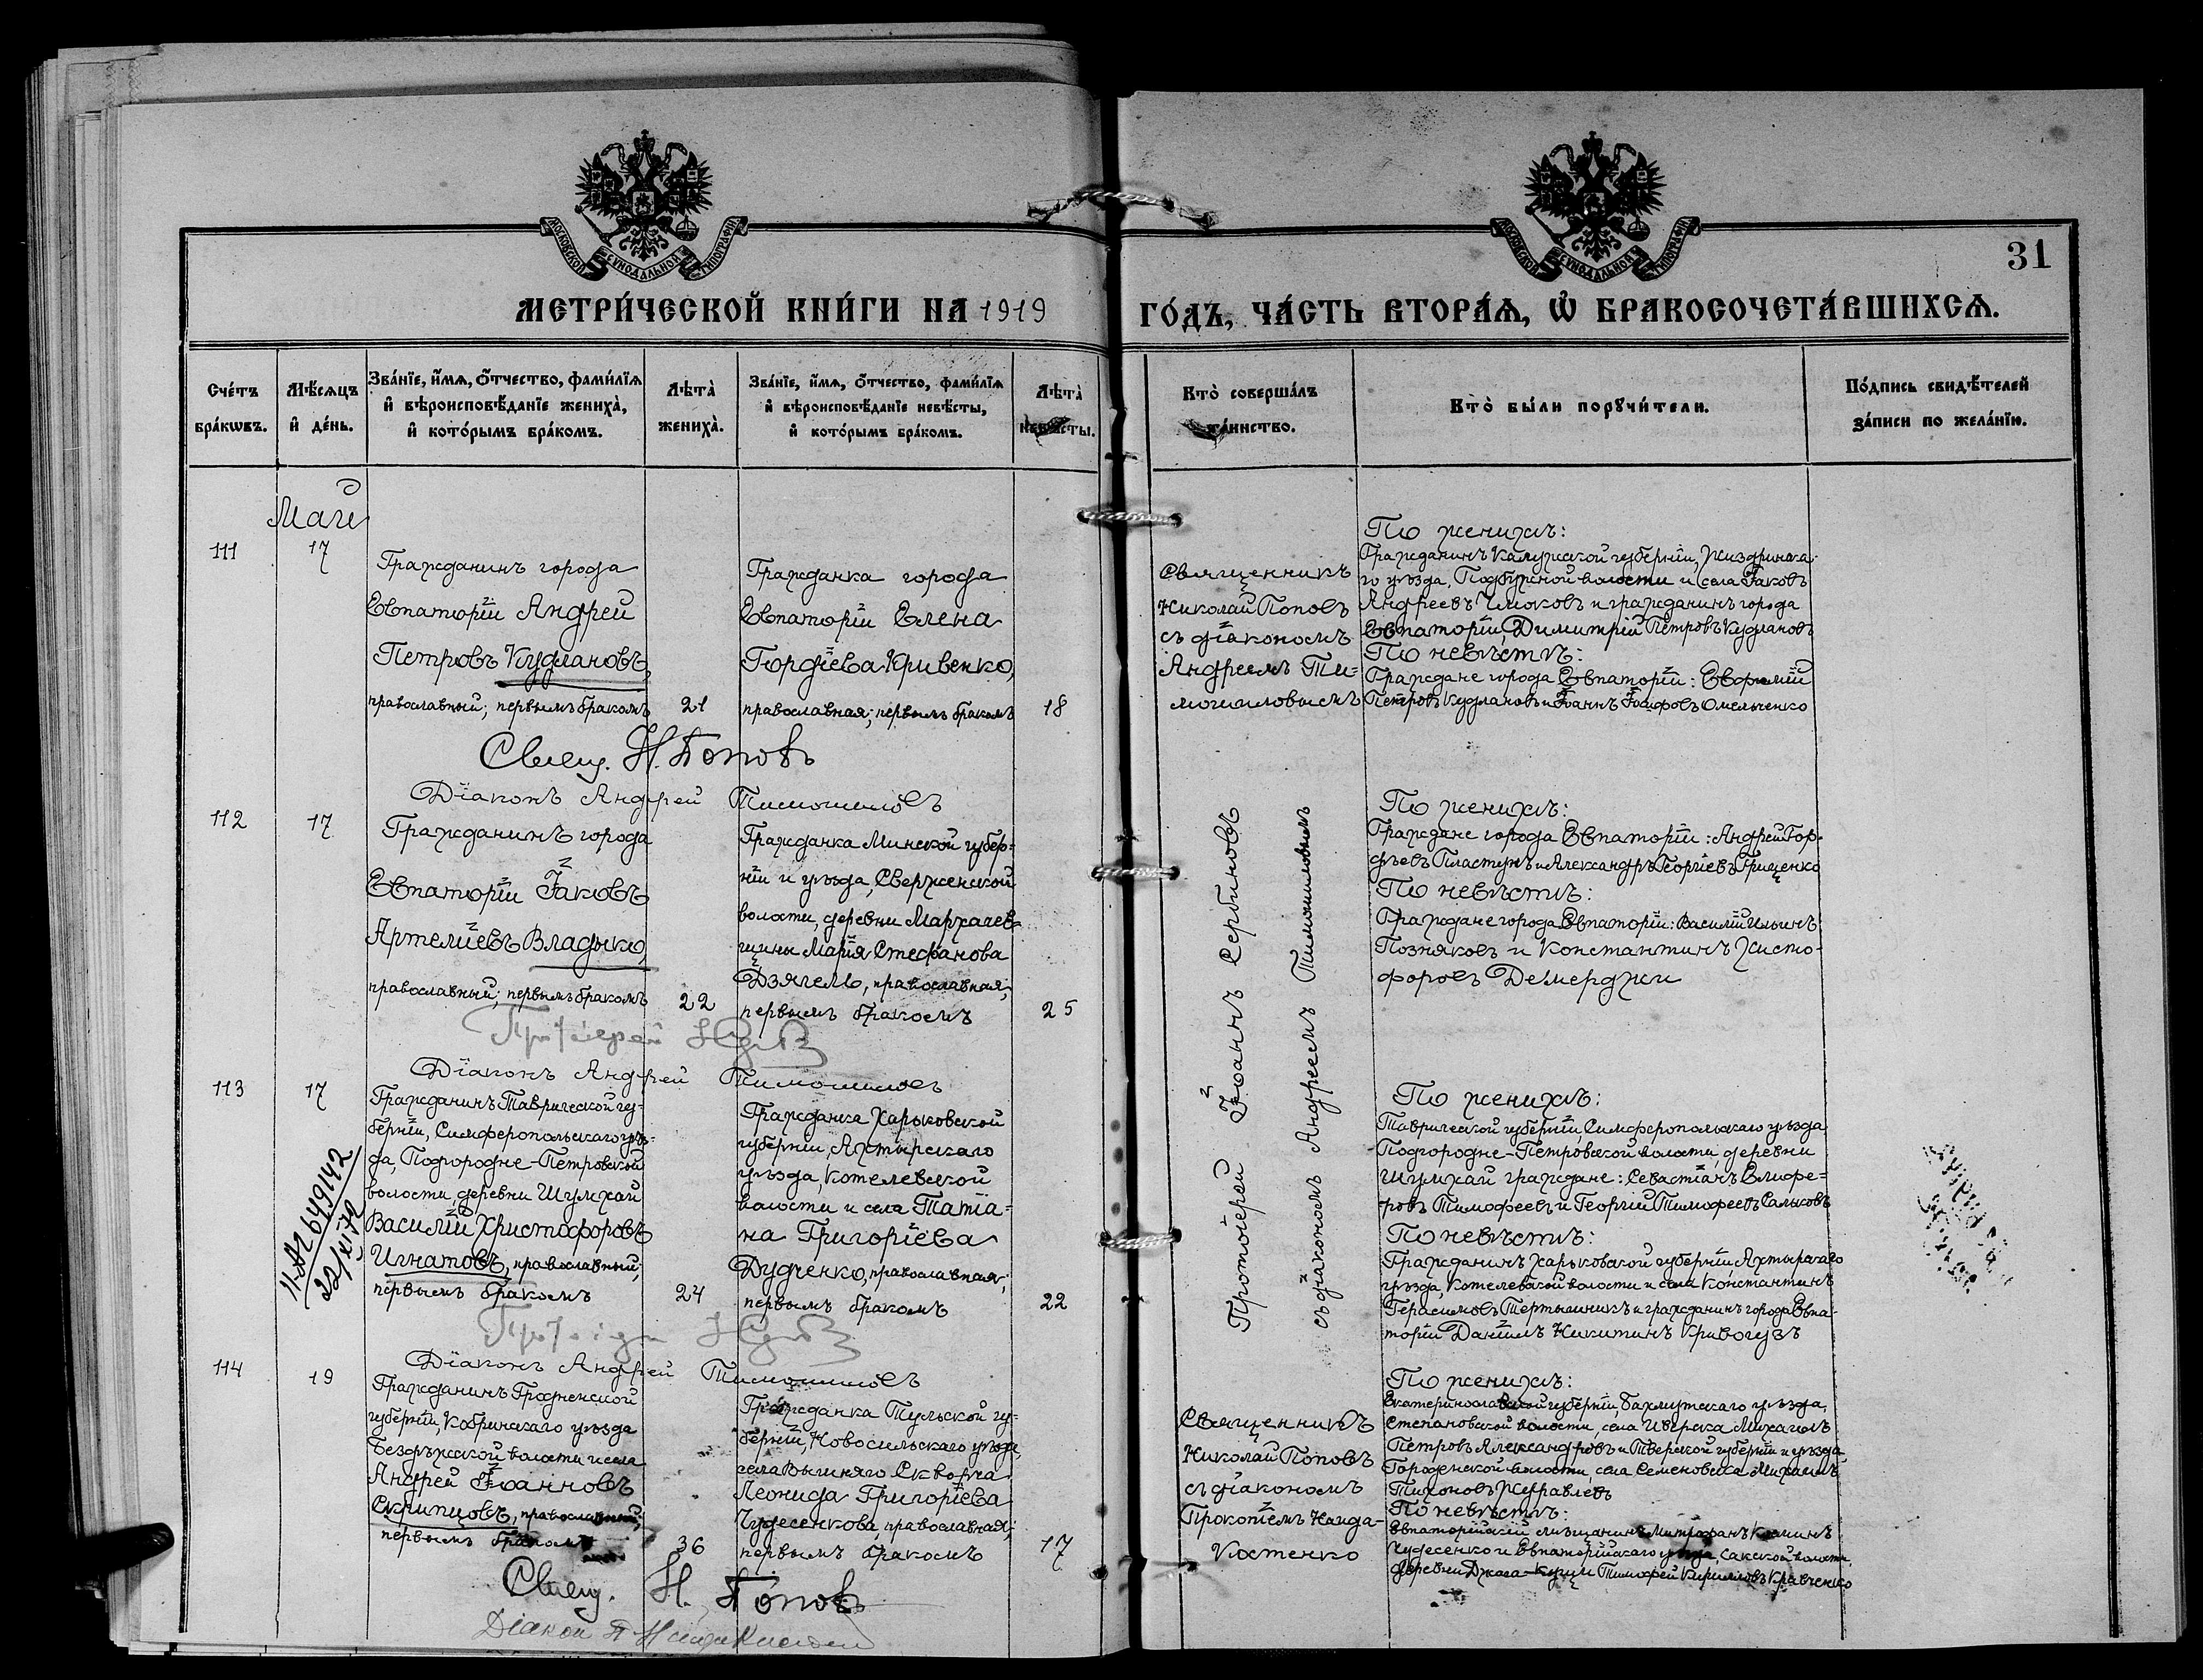 МОСКОВСКОЙ СѴНОДАЛЬНОЙ ТИПОГРАФІИ
МОСКОВСКОЙ СѴНОДАЛЬНОЙ ТИПОГРАФІИ
31
МЕТРИ́ЧЕСКОЙ КНИ́ГИ НА 1919 ГО́ДЪ, ЧА́СТЬ ВТОРА́Ѧ, Ѿ БРАКОСОЧЕТА́ВШИХСѦ.
Сче́тъ
бра́кѡвъ.
Мѣ́сяцъ
и де́нь.
Зва́нїе, и́мѧ, ѻ́тчество, фами́лїѧ
и вѣроисповѣ́данїе жениха̀,
и кото́рымъ бра́комъ.
Лѣта̀
жениха̀.
Зва́нїе, и́мѧ, ѻ́тчество, фами́лїѧ
и вѣроисповѣ́данїе невѣ́сты,
и кото́рымъ бра́комъ.
Лѣта̀
невѣ́сты.
Кто̀ соверша́лъ
та́инство.
Кто̀ бы́ли порꙋчи́тели.
По́дпись свидѣ́телей
за́писи по жела́нїю.
Май
111
17
Гражданинъ города
Евпаторіи Андрей
Петровъ Кудлановъ,
православный; первымъ бракомъ
21
Гражданка города
Евпаторіи Елена
Гордіева Кривенко,
православная; первымъ бракомъ
18
Священникъ
Николай Поповъ
съ діакономъ
Андреемъ Ти-
мошиловымъ
По женихѣ:
Гражданинъ Калужской губерніи, Жиздринска-
го уѣзда, Подбужской волости и села Іаковъ
Андреевъ и гражданинъ города
Евпаторіи, Димитрій Петровъ Кудлановъ
По невѣстѣ:
Граждане города Евпаторіи: Евфимій
Петровъ Кудлановъ и Іоаннъ Омельченко
Свящ. Н. Поповъ
Діаконъ Андрей Тимошиловъ
112
17
Гражданинъ города
Евпаторіи Іаковъ
Артеміевъ Владыко,
православный; первымъ бракомъ
22
Гражданка Минской губер-
ніи и уѣзда, Сверженской
волости, деревни
Марія Стефанова
Дзягель, православная,
первымъ бракомъ
25
Протоіерей Іоаннъ Сербиновъ
съ діакономъ Андреемъ Тимошиловымъ
По женихѣ:
Граждане города Евпаторіи: Андрей Гор-
дѣевъ Пластунъ и Александръ Георгіевъ Грищенко
По невѣстѣ:
Граждане города Евпаторіи: Василій Ильинъ
Позняковъ и Константинъ Христо-
форовъ Демерджи
Протоіерей
Діаконъ Андрей Тимошиловъ
113
17
Гражданинъ Таврической гу-
берніи, Симферопольскаго уѣз-
да, Подгородне-Петровской
волости, деревни Шумхай
Василій Христофоровъ
Игнатовъ, православный;
первымъ бракомъ
24
Гражданка Харьковской
губерніи, Ахтырскаго
уѣзда, Котелевской
волости и села Татіа-
на Григоріева
Дудченко, православная;
первымъ бракомъ
22
По женихѣ:
Таврической губерніи, Симферопольскаго уѣзда
Подгородне-Петровской волости, деревни
Шумхай граждане: Севастіанъ Елифе-
ровъ Тимофеевъ и Георгій Тимофеевъ Сальковъ
По невѣстѣ:
Гражданинъ Харьковской губерніи, Ахтырскаго
уѣзда, Котелевской волости и села Константинъ
Герасимовъ Тертышникъ и гражданинъ города Евпа-
торіи Даніилъ Никитинъ Кривогузъ
Діаконъ Андрей Тимошиловъ
114
19
Гражданинъ Гродненской
губерніи, Кобринскаго уѣзда
Бездѣжской волости и села
Андрей Іоанновъ
Скрипцовъ, православный;
первымъ бракомъ
36
Гражданка Тульской гу-
берніи, Новосильскаго уѣзда,
села Вышняго Скворча
Леонида Григоріева
Чудесенкова, православная;
первымъ бракомъ
17
Священникъ
Николай Поповъ
съ діакономъ
Прокопіемъ Найда-
Костенко
По женихѣ:
Екатеринославской губерніи, Бахмутскаго уѣзда,
Степановской волости, села Иверска Михаилъ
Петровъ Александровъ и Тверской губерніи и уѣзда,
Городенской волости, села Семеновска Михаилъ
Тихоновъ Журавлевъ
По невѣстѣ:
Евпаторійскій мѣщанинъ Митрофанъ
Чудесенко и Евпаторійскаго уѣзда, Сакской волости,
деревни Тимофей Кирилловъ Кравченко
Свящ. Н. Поповъ